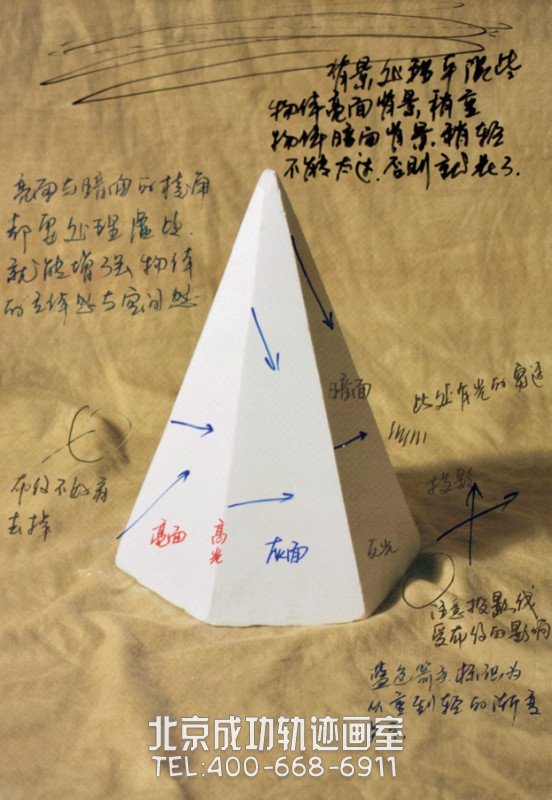 背景处理平混些
物体亮面背景,稍重
物体暗面背景,稍轻
不能太过,否则就花了.
亮面与暗面的棱角
都要处理虚些.
就能增强物体
的立体感与空间感
暗面
此处有光的穿透
布纹不好看
去掉
投影
亮面
高光
灰面
反光
注意投影线
受布纹的影响
蓝色箭头标识为
从重到轻的渐变
北京成功轨迹画室
TEL:400-668-6911